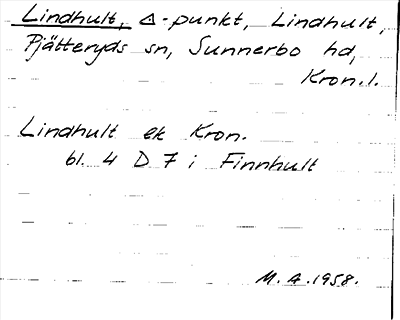 Lindhult, △-punkt, Lindhult,
Pjätteryds sn, Sunnerbo hd,
Kron.l.
Lindhult ek Kron.
bl. 4 D 7 i Finnhult
M.A.1958.